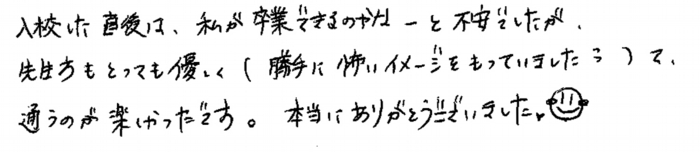 入校した直後は、私が卒業できるのかなーと不安でしたが、
先生方もとっても優しく(勝手に怖いイメージをもっていましたㅋ)て、
通うのが楽しかったです。本当にありがとうございました。